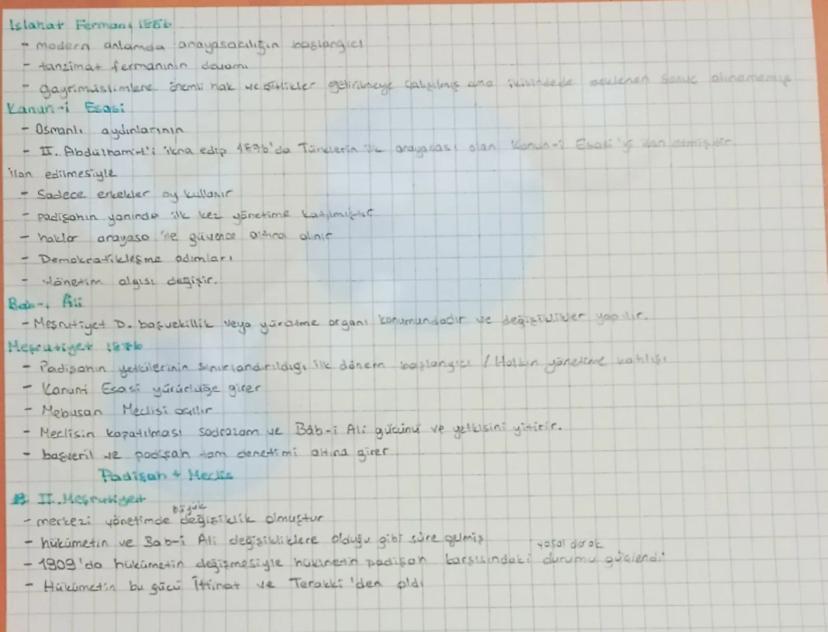 Islahat Fermanı 1856
- modern anlamda anayasacılığın başlangıcı
- tanzimat fermanının devamı
- gayrimüslimlere önemli hak ve getirilmeye çalışılmış ama alınamamış
Kanun-i Esasi
- Osmanlı aydınlarının
- II. Abdülhamit'i ikna edip 1876'da Türklerin ilk anayasası olan Kanun-i Esasi'yi ilan etmiştir.
ilan edilmesiyle
- Sadece erkekler oy kullanır
- padişahın yanında ilk kez yönetime katılmıştır
- haklar anayasa ile güvence altına alınır
- Demokratikleşme adımları
- Yönetim algısı değişir.
Bab-ı Ali
- Meşrutiyet D. başvekillik veya yürütme organı konumundadır ve değişiklikler yapılır.
Meşrutiyet 1876
- Padişahın yetkilerinin sınırlandırıldığı ilk dönem başlangıcı / Halkın yönetime katılışı
- Kanuni Esasi yürürlüğe girer
- Mebusan Meclisi açılır
- Meclisin kapatılması sadrazam ve Bâb-i Ali gücünü ve yetkisini yitirir.
- ve padişah tam denetimi altına girer
Padişah + Meclis
II. Meşrutiyet
- merkezi yönetimde büyük değişiklik olmuştur
- hükümetin ve Bab-i Ali değişikliklere olduğu gibi süre gelmiş
- 1909'da hükümetin değişmesiyle padişah karşısındaki yasal olarak durumu güçlendi
- Hükümetin bu gücü İttihat ve Terakki'den aldı